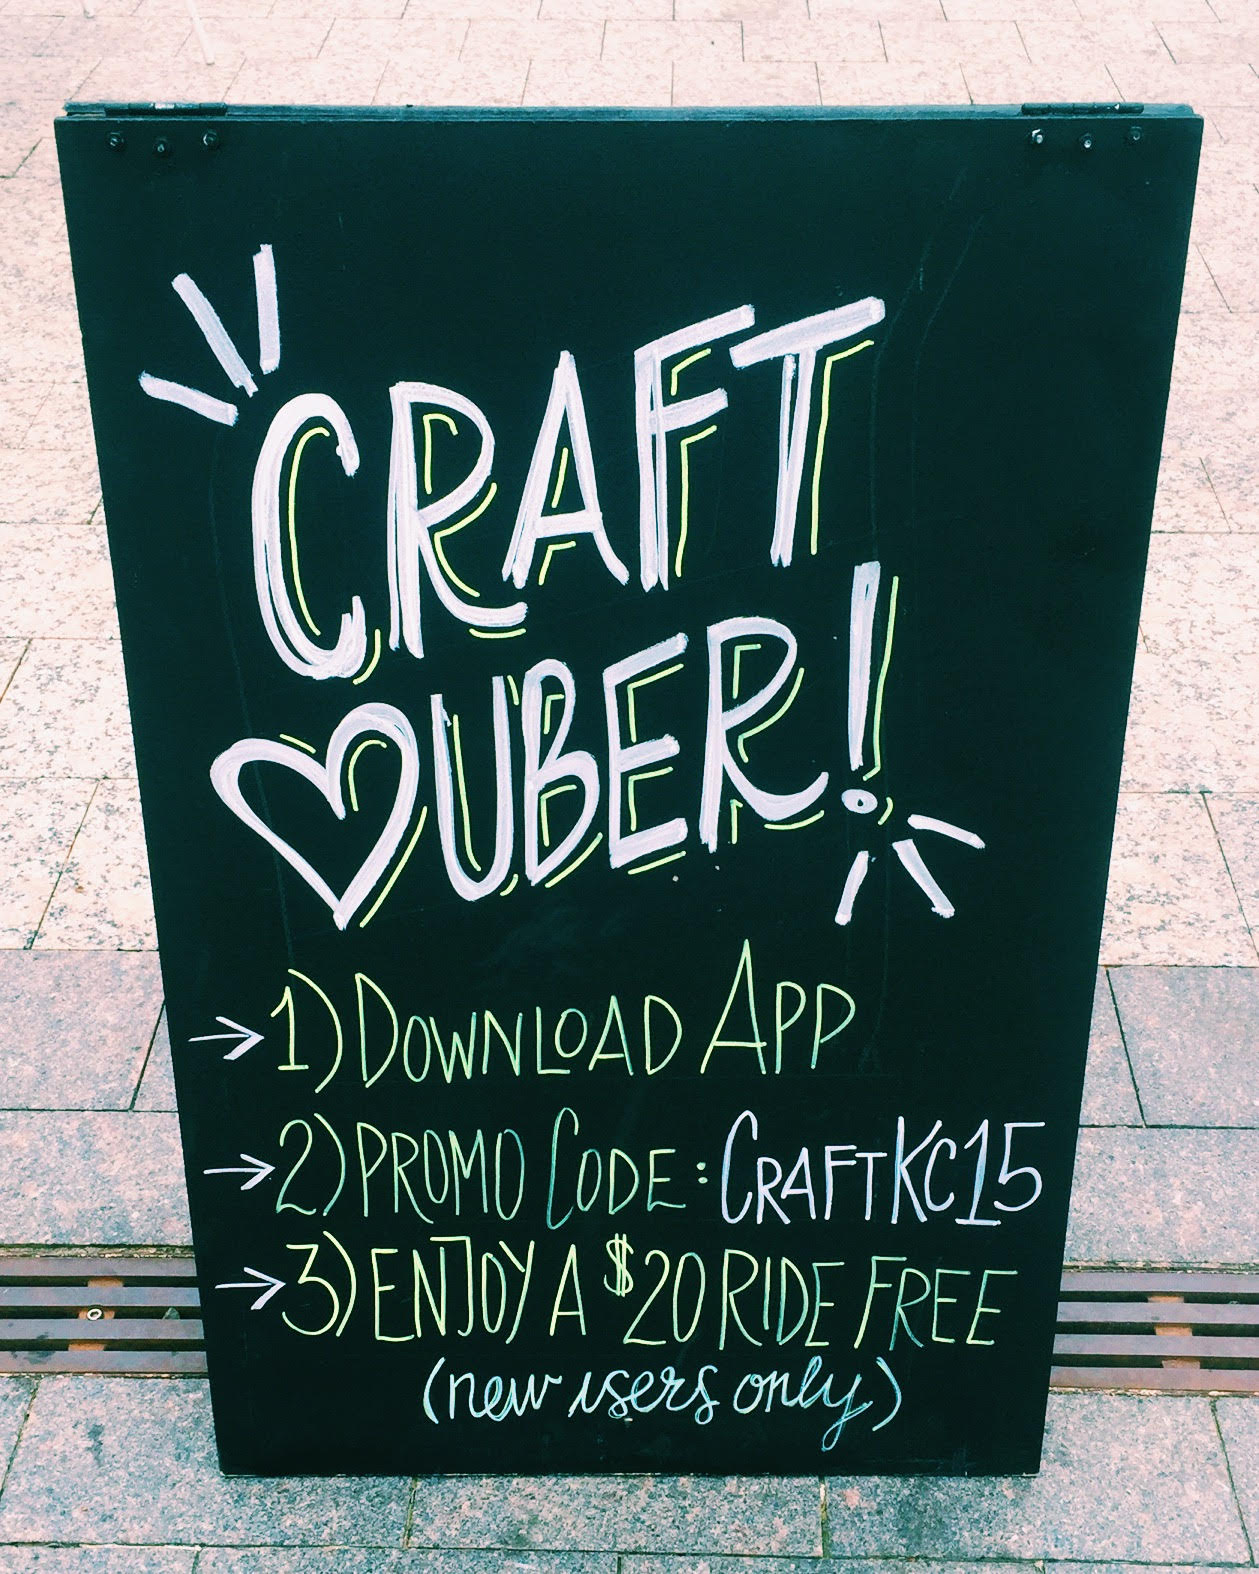 CRAFT
♡ UBER!
→ 1) DOWNLOAD APP
→ 2) PROMO CODE: CRAFTKC15
→ 3) ENJOY A $20 RIDE FREE
(new users only)